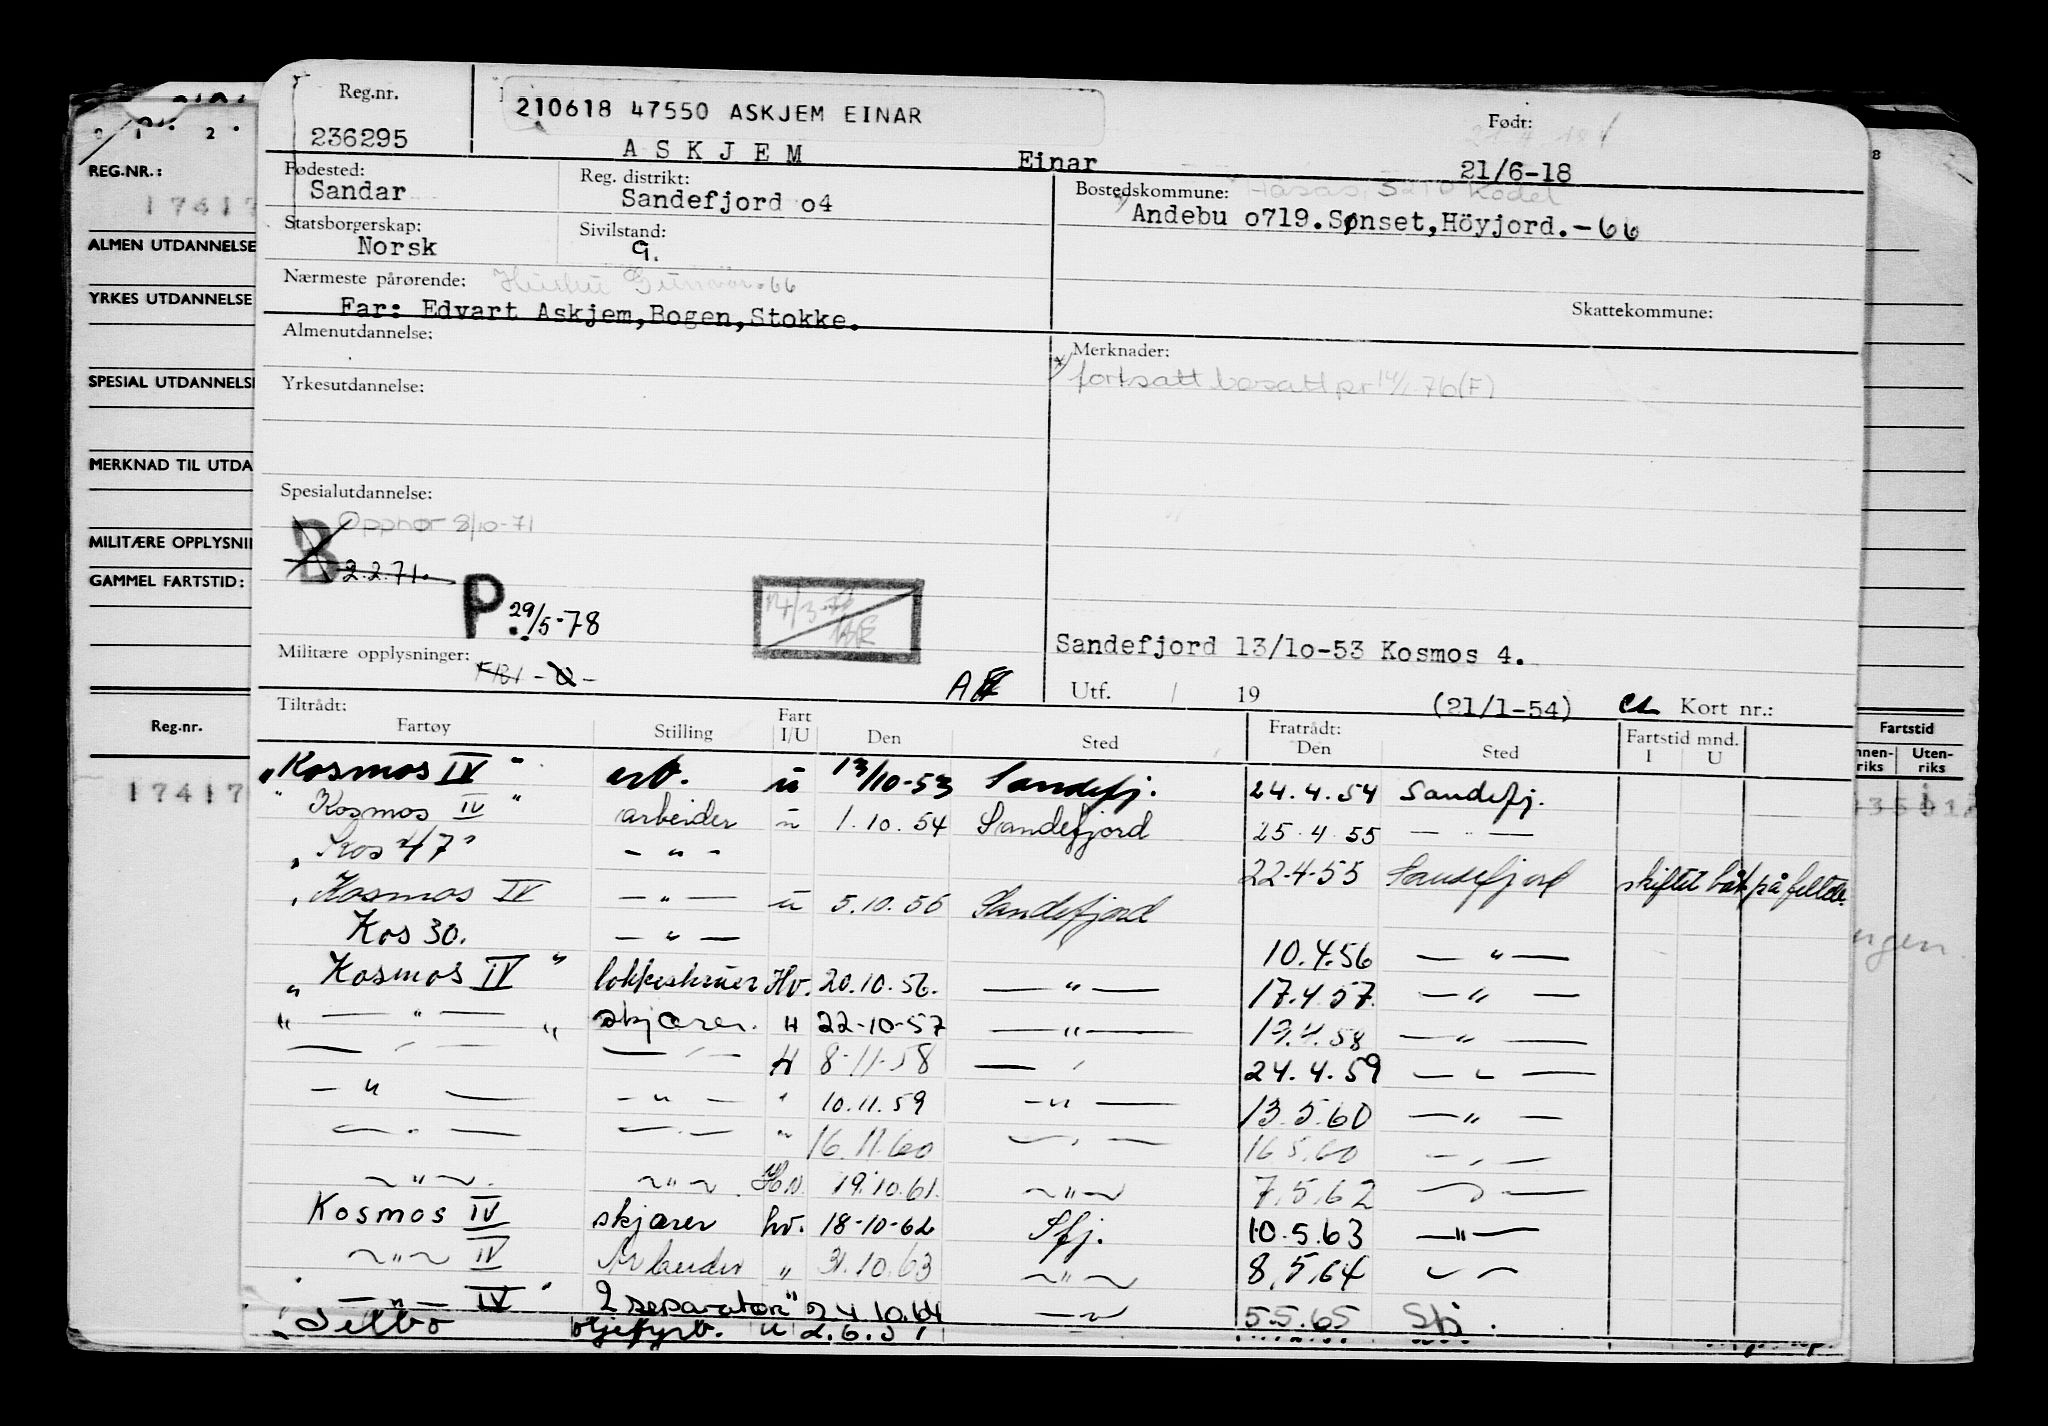 Reg.nr.
236295
210618 47550 ASKJEM EINAR
A S K J E M Einar
Født:
21/6-18
Fødested:
Sandar
Reg. distrikt:
Sandefjord o4
Bostedskommune:
Andebu o719.Sønset,Höyjord.-66
Statsborgerskap:
Norsk
Sivilstand:
G.
Nærmeste pårørende: Hustru Gunvor-66
Far: Edvart Askjem,Bogen,Stokke.
Skattekommune:
Almenutdannelse:
Merknader:
fortsatt bosatt pr 14/1-76(F)
Yrkesutdannelse:
Spesialutdannelse:
Opphør 8/10-71
B 2.2.71.
P. 29/5-78
Militære opplysninger:
Sandefjord 13/1o-53 Kosmos 4.
Utf. / 19 (21/1-54) Kort nr.:
Tiltrådt:
Fartøy Stilling Fart I/U Den Sted Fratrådt: Den Sted Fartstid mnd. I U
"Kosmos IV" arb. u 13/10-53 Sandefj. 24.4.54 Sandefj.
"Kosmos IV" arbeider u 1.10.54 Sandefjord 25.4.55 — " —
"Kos 47" — " — 22-4-55 Sandefjord skiftet båt på feltet.
"Kosmos IV — " — u 5.10.55 Sandefjord
Kos 30. — " — 10.4.56 — " —
"Kosmos IV" lokkeskruer Hv. 20.10.56. — " — 17.4.57. — " —
" — " — " skjærer. H 22-10-57 — " — 19.4.58 — " —
— " — — " — H 8-11-58 — " 24.4.59 — " —
— " — — " — " 10.11.59 — " — 13.5.60 — " —
— " — — " — " 16.11.60 — " — 16.5.60 — " —
— " — — " — Hv. 19.10.61. — " — 7.5.62 — " —
Kosmos IV skjærer hv. 18-10-62 Sfj. 10.5.63 — " —
— " — IV Arbeider " 31.10.63 — " — 8.5.64 — " —
— " — IV" 2 separatør " 24.10.64 — " — 5.5.65 Sfj.
oljefyrb. u
REG.NR.:
17417
ALMEN UTDANNELSE
YRKES UTDANNELSE
SPESIAL UTDANNELSE
MERKNAD TIL UTDA
MILITÆRE OPPLYSNI
GAMMEL FARTSTID:
Reg.nr.
17417
Fartstid
nnen-
riks
Uten-
riks